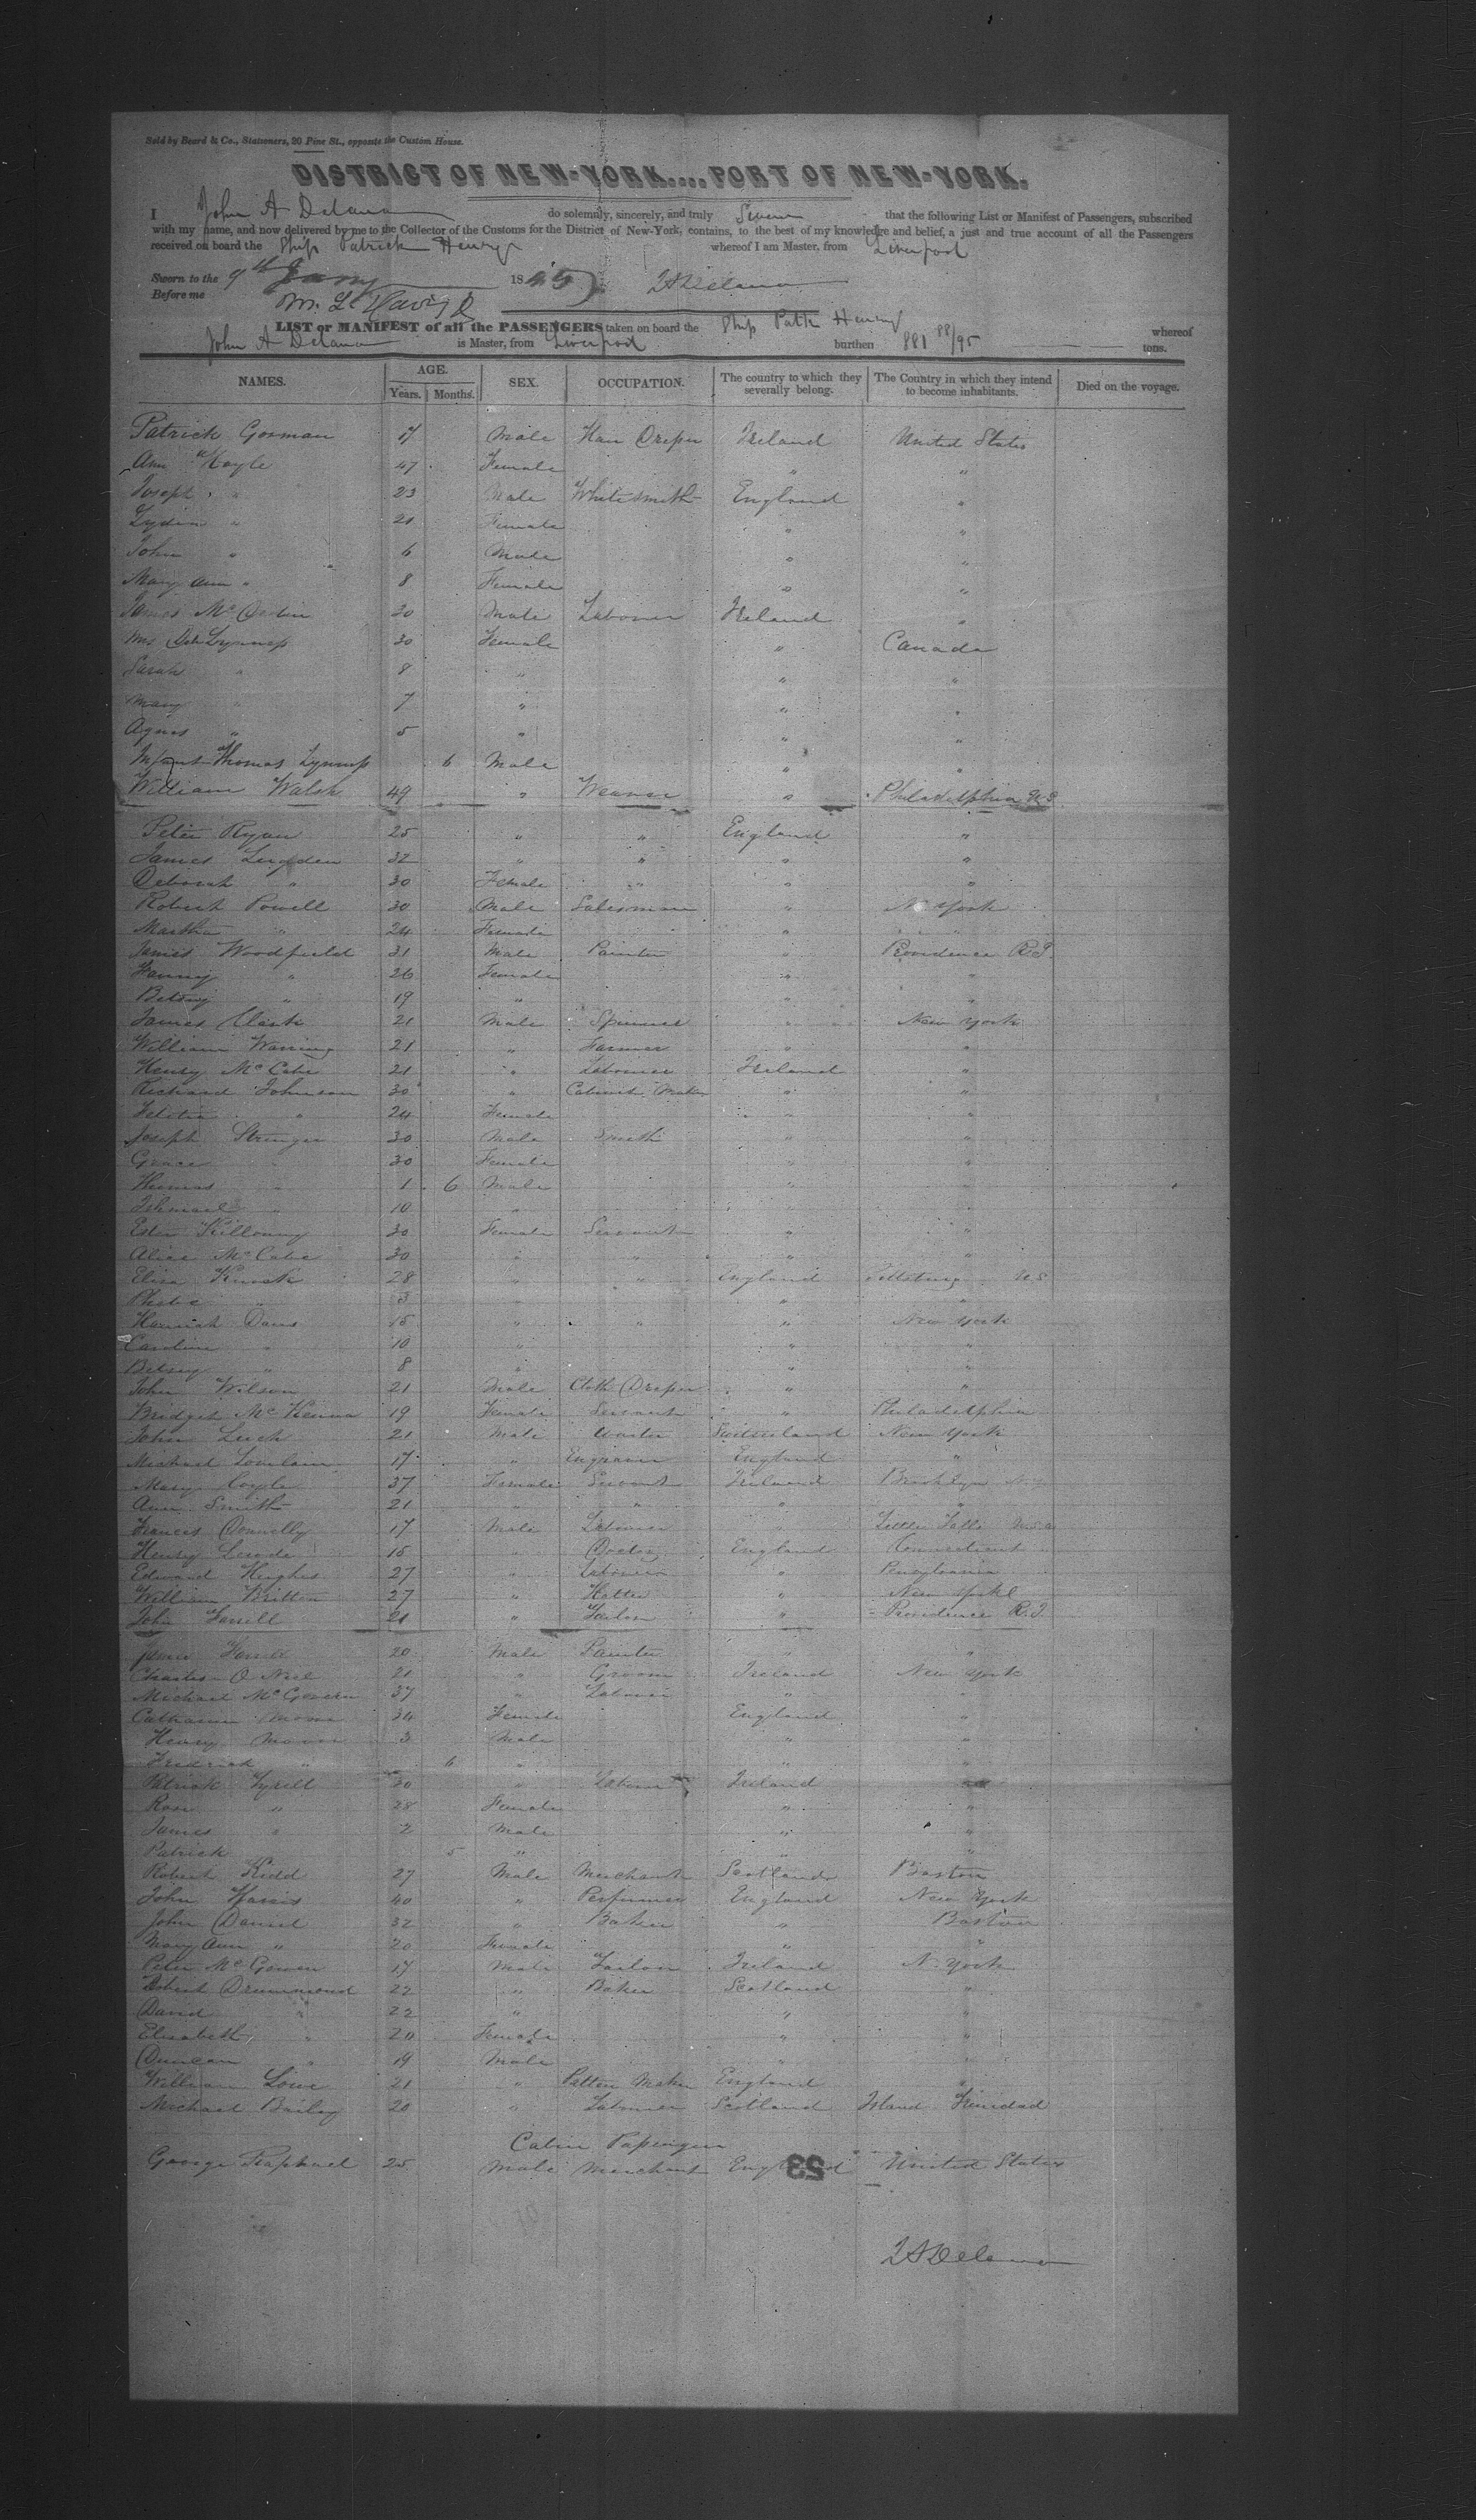 Sold by Beard & Co., Stationers, 20 Pine St., opposite the Custom House.
DISTRICT OF NEW-YORK....PORT OF NEW-YORK.
I John A Delano do solemnly, sincerely, and truly Swear that the following List or Manifest of Passengers, subscribed
with my name, and now delivered by me to the Collector of the Customs for the District of New-York, contains, to the best of my knowledge and belief, a just and true account of all the Passengers
received on board the Ship Patrick Henry whereof I am Master, from Liverpool
Sworn to the 9th Jany 1845 J A Delano
Before me
LIST or MANIFEST of all the PASSENGERS taken on board the Ship Patk Henry whereof
John A Delano is Master, from Liverpool burthen 881 88/95 tons.
NAMES. AGE. Years. Months. SEX. OCCUPATION. The country to which they severally belong. The Country in which they intend to become inhabitants. Died on the voyage.
Patrick Gorman 17 Male Draper Ireland United States
Ann Hoyle 47 Female " "
Joseph " 23 Male Whitesmith England "
Lydia " 21 Female " "
John " 6 Male " "
Mary Ann " 8 Female " "
James 30 Male Laborer Ireland "
Mrs 30 Female " Canada
Sarah " 8 " " "
Mary " 7 " " "
Agnes " 5 " " "
Infant Thomas 6 Male " "
William Walsh 49 " Weaver " Philadelphia U S
Peter Ryan 25 " " England "
James 32 " " " "
Deborah " 30 Female " " "
Robert Powell 30 Male Salesman " N York
Martha " 24 Female " "
James Woodfield 31 Male Painter " Providence R.I.
Fanny " 26 Female " "
Betsey " 19 " " "
James Clark 21 Male Spinner " New York
William Waring 21 " Farmer " "
Henry McCabe 21 " Laborer Ireland "
Richard Johnson 30 " Cabinet Maker " "
" 24 Female " "
Joseph Stringer 30 Male Smith " "
Grace " 30 Female " "
Thomas " 1 6 Male " "
Ishmael " 10 " " "
Ester 30 Female Servant " "
Alice McCabe 30 " " " "
Eliza 28 " " England Pittsburg U.S
Phebe " 3 " " "
Hannah Davis 15 " " " New York
Caroline " 10 " " "
Betsey " 8 " " "
John Wilson 21 Male Cloth Draper " "
Bridget McKenna 19 Female Servant " Philadelphia
John 21 Male Waiter Switzerland New York
Michael 17 " Engraver England "
Mary Coyle 37 Female Servant Ireland Brooklyn
Ann Smith 21 " " " "
Frances Donnelly 17 Male Laborer " Little Falls
Henry 15 " England Connecticut
Edward Hughes 27 " Laborer " Pensylvania
William Britton 27 " Hatter " New York
John Farrell 21 " Tailor " Providence R.I
James 20 Male Painter " "
Charles O Neil 21 " Groom Ireland New York
Michael McGovern 37 " Laborer " "
Catharine Moore 34 Female England "
Henry Moore 3 Male " "
Fredrick " 6 " " "
Patrick Tyrell 30 " Laborer Ireland "
Rose " 28 Female " "
James " 2 Male " "
Patrick 5 " " "
Robert Kidd 27 Male Merchant Scotland Boston
John Harris 40 " Perfumer England New York
John Daniel 32 " Baker " Boston
Mary Ann " 20 Female " "
Peter McGowen 17 Male Tailor Ireland N. York
Robert Drummond 22 " Baker Scotland "
David " 22 " " "
Elizabeth " 20 Female " "
Duncan " 19 Male " "
William Lowe 21 " Pattern Maker England "
Michael Bailey 20 " Laborer Scotland Island Trinidad
Cabin Passenger
George Raphael 25 Male Merchant England United States
53
J A Delano